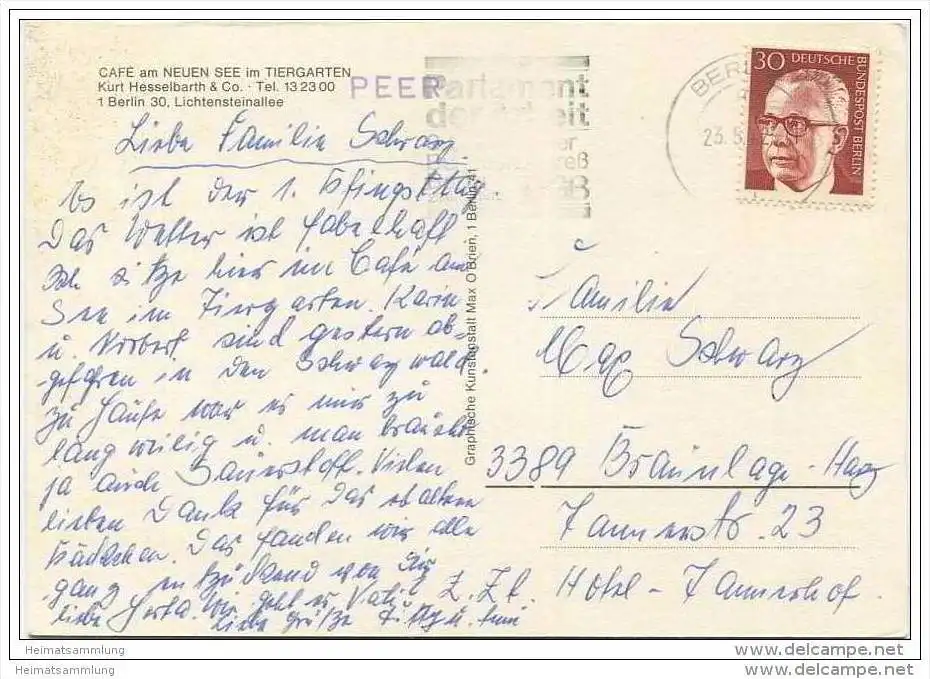 CAFÉ am NEUEN SEE im TIERGARTEN
Kurt Hesselbarth & Co. · Tel. 13 23 00
1 Berlin 30, Lichtensteinallee
PEER
Parlament
der Arbeit
BERLIN
23.5.
30 DEUTSCHE
BUNDESPOST BERLIN
Liebe Familie Schwarz,
Es ist der 1. Pfingsttag.
Das Wetter ist fabelhaft
Ich sitze hier im Café am
See im Tiergarten. Karin
u. Norbert sind gestern ab-
gefahren in den Schwarzwald.
Zu Hause war es mir zu
langweilig u. man braucht
ja auch Sauerstoff. Vielen
lieben Dank für das erhaltene
Päckchen. Das fanden wir alle
ganz entzückend von Dir
liebe Herta. Wie geht es Vati?
Liebe Grüße
Graphische Kunstanstalt Max O'Brien, 1 Berlin 41
Familie
Max Schwarz
3389 Braunlage-Harz
Tannerstr. 23
z. Zt. Hotel-Tannerhof.
Heimatsammlung
Heimatsammlung
www.delcampe.net
www.delcampe.net